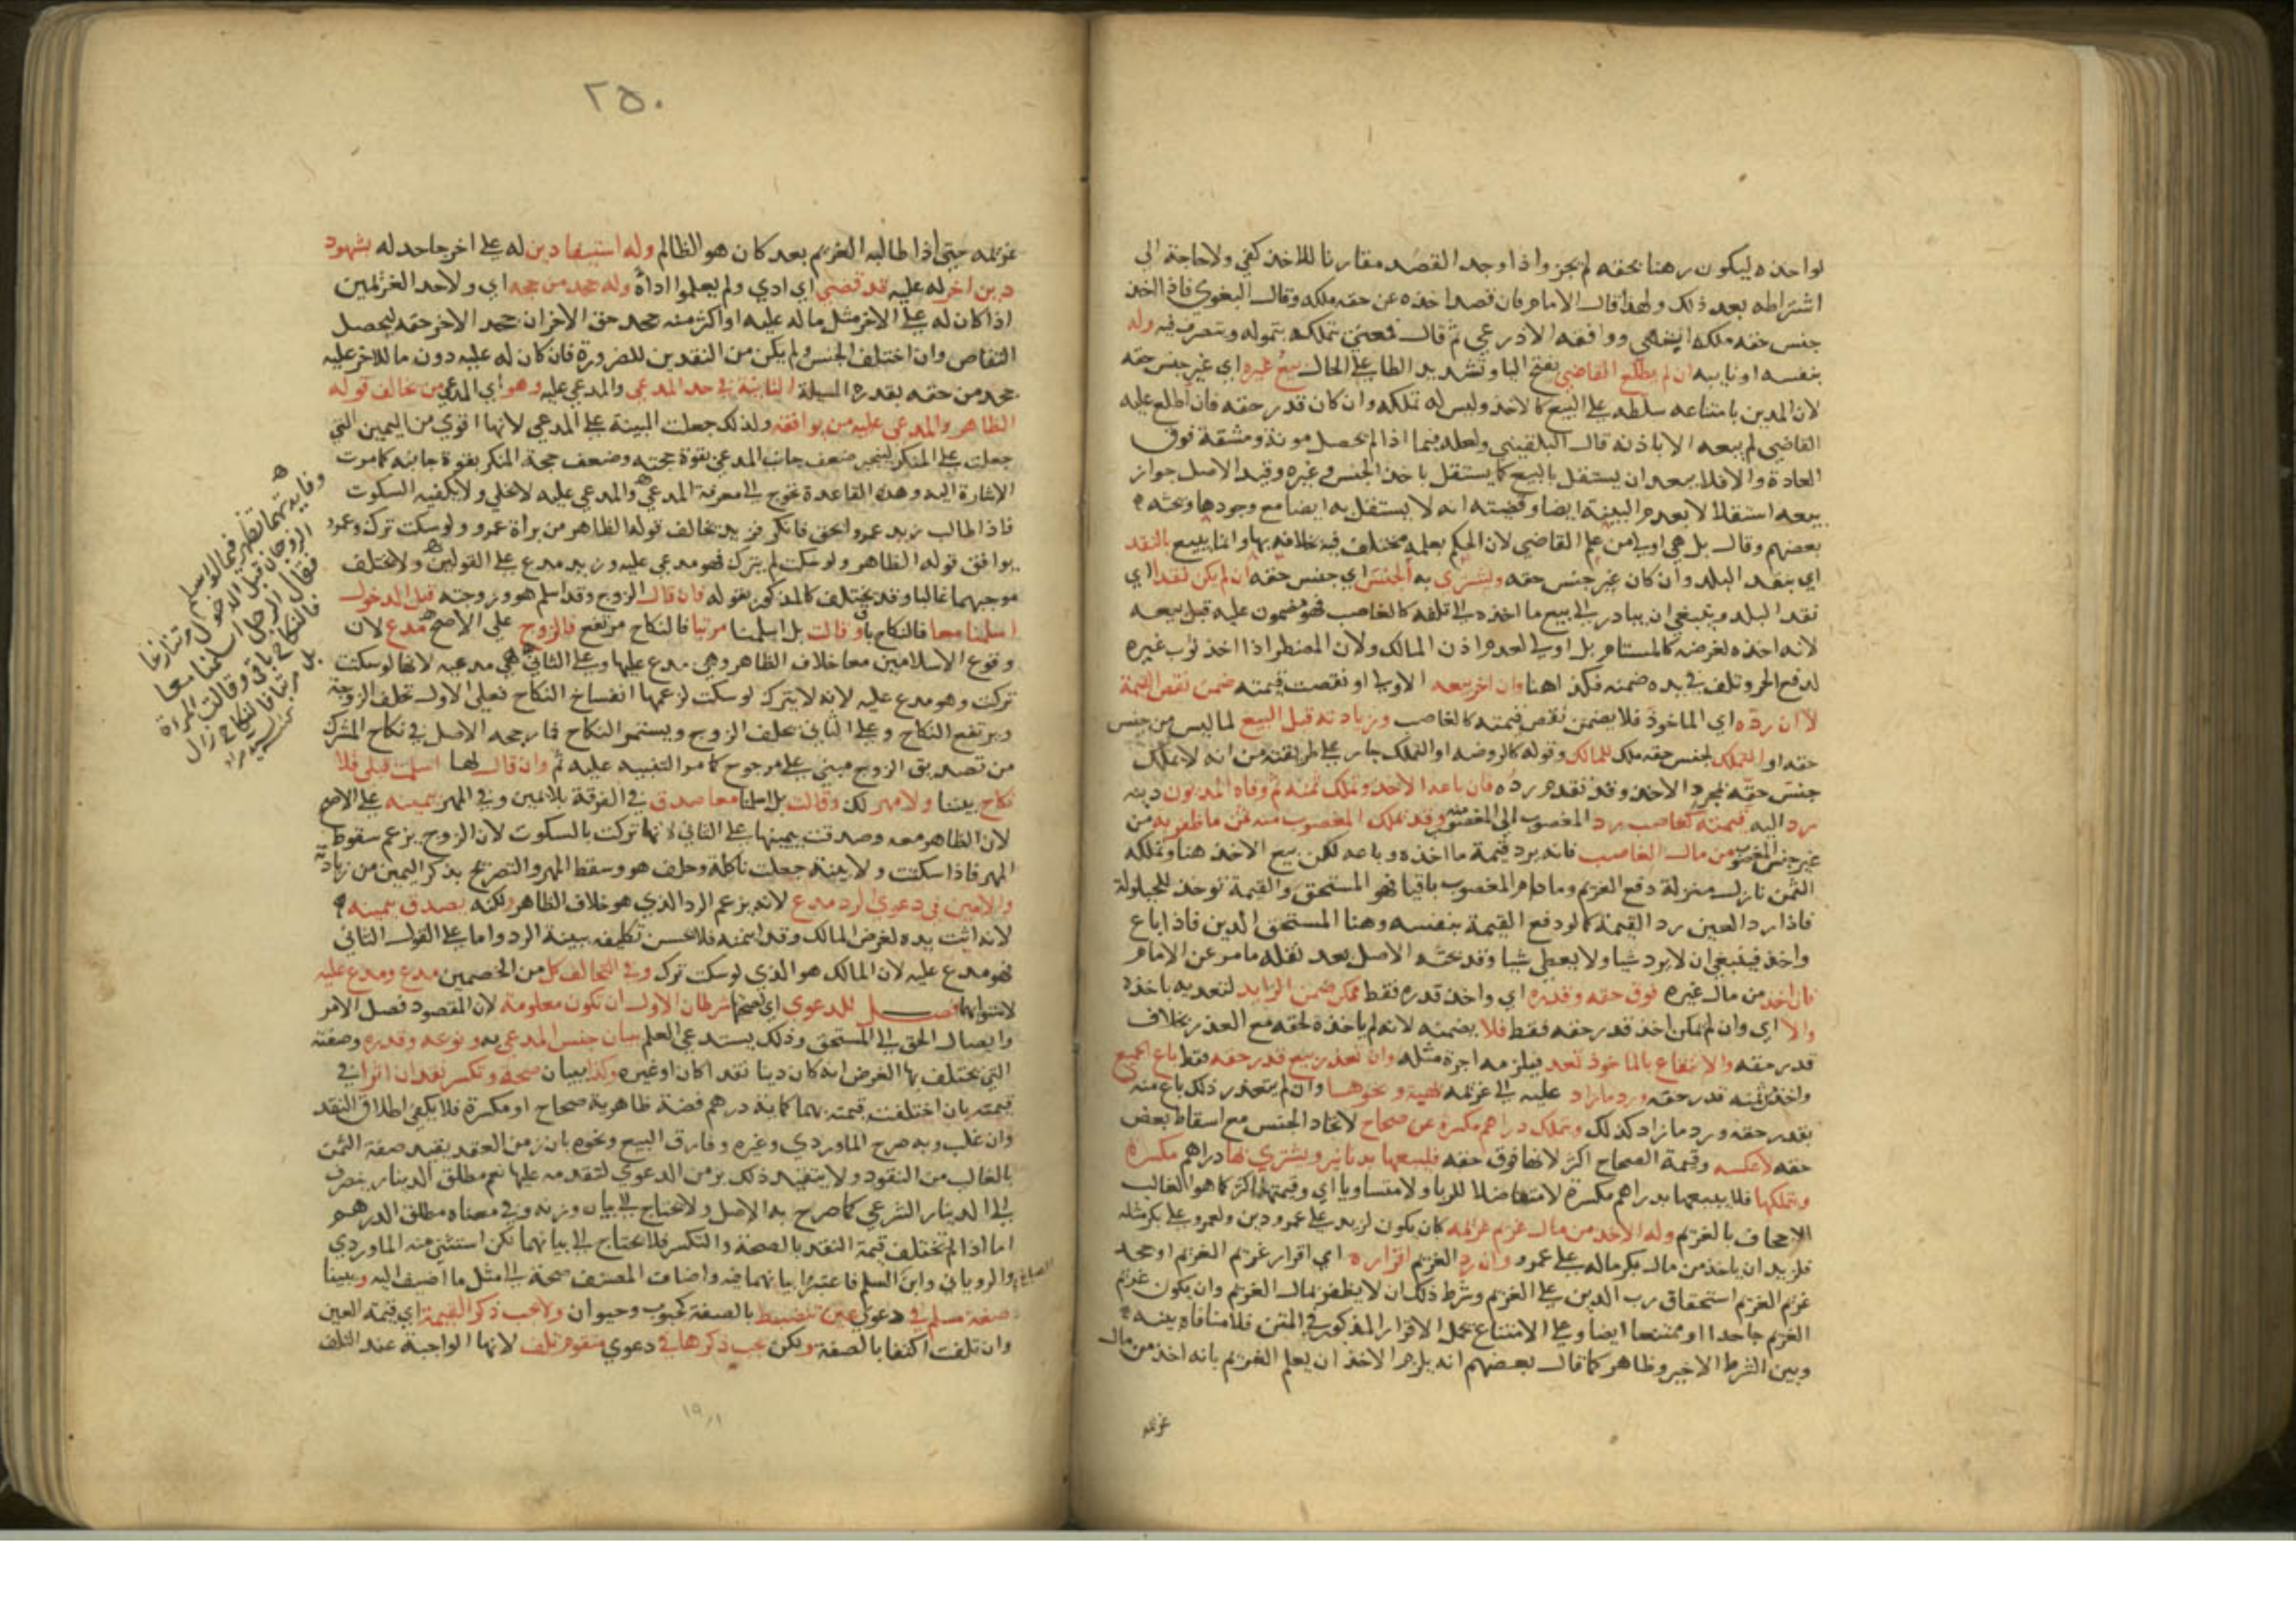 لو اخذه ليكون رهنا بحقه لم يجز واذا وجد القصد مقارنا للاخذ كفى ولا حاجة الى
اشتراطه بعد ذلك ولهذا قال الامام فان قصد اخذه عن حقه ملكه وقال البغوي فاذا اخذ
جنس حقه ملكه انتهى ووافقه الاذرعي ثم قال فمعنى تملكه يتموله ويتصرف فيه وله
بنفسه او نايبه ان لم يطلع القاضي بفتح اليا وتشديد الطا على الحال بيع غيره اي غير جنس حقه
لان المدين بامتناعه سلطه على البيع كالاخذ وليس له تملكه وان كان قدر حقه فان اطلع عليه
القاضي لم يبعه الا باذنه قال البلقيني ولعله فيما اذا لم يحصل مونة ومشقة فوق
العادة والا فلا يبعد ان يستقل بالبيع كما يستقل باخذ الجنس وغيره وقيد الاصل جواز
بيعه استقلالا بعدم البينة ايضا وقضيته انه لا يستقل به ايضا مع وجودها وبحثه
بعضهم وقال بل هي اولى من علم القاضي لان الحكم بعلمه مختلف فيه بخلافه بها وانما يبيع بالنقد
اي بنقد البلد وان كان غير جنس حقه ويشتري به الجنس اي جنس حقه ان لم يكن نقدا اي
نقد البلد وينبغي ان يبادر الى بيع ما اخذه الى تلفه كالغاصب فهو مضمون عليه قبل بيعه
لانه اخذه لغرضه كالمستام بل اولى لعدم اذن المالك ولان المضطر اذا اخذ ثوب غيره
لدفع الحر وتلف في يده ضمنه فكذا هنا وان اخر بيعه الاولى او نقصت قيمته ضمن نقص القيمة
لا ان رده اي الماخوذ فلا يضمن نقص قيمته كالغاصب وزيادته قبل البيع لما ليس من جنس
حقه او التملك لجنس حقه ملك للمالك وقوله كالروضه او التملك جار على طريقته من انه لا يملك
جنس حقه بمجرد الاخذ وقد تقدم رده فان باعه الاخذ وتملك ثمنه ثم وفاه المديون دينه
رد اليه قيمته كغاصب رد المغصوب الى المغصوب منه وقد تملك المغصوب منه ثمن ما ظفر به من
غير جنس المغصوب من مال الغاصب فانه يرد قيمة ما اخذه وباعه لكن بيع الاخذ هنا وتملكه
الثمن نازل منزلة دفع الغريم وما دام المغصوب باقيا فهو المستحق والقيمة توخذ للحيلولة
فاذا رد العين رد القيمة كما لو دفع القيمة بنفسه وهنا المستحق الدين فاذا باع
واخذ فينبغي ان لا يرد شيا ولا يعطى شيا وقد بحثه الاصل بعد نقله ما مر عن الامام
فان اخذ من مال غيره فوق حقه وقدره اي واخذ قدره فقط ممكن ضمن الزايد لتعديه باخذه
والا اي وان لم يمكن اخذ قدر حقه فقط فلا يضمنه لانه لم ياخذه لحقه مع العذر بخلاف
قدر حقه والانتفاع بالماخوذ تعد فيلزمه اجرة مثله وان تعذر بيع قدر حقه فقط باع الجميع
واخذ من ثمنه قدر حقه ورد ما زاد عليه الى غريمه بهبة ونحوها وان لم يتعذر ذلك باع منه
بقدر حقه ورد ما زاد كذلك ويتملك دراهم مكسرة عن صحاح لاتحاد الجنس مع اسقاط بعض
حقه لا عكسه وقيمة الصحاح اكثر لانها فوق حقه فليبعها بدنانير ويشتري بها دراهم مكسرة
ويتملكها فلا يبيعها بدراهم مكسرة لا متفاضلا للربا ولا متساويا اي وقيمتها اكثر كما هو الغالب
للاجحاف بالغريم وله الاخذ من مال غريم غريمه كان يكون لزيد على عمرو دين ولعمرو على بكر مثله
فلزيد ان ياخذ من مال بكر ما له على عمرو وان رد الغريم اقراره اي اقرار غريم الغريم او جحد
غريم الغريم استحقاق رب الدين على الغريم وشرط ذلك ان لا يظفر بمال الغريم وان يكون غريم
الغريم جاحدا او ممتنعا ايضا وعلى الامتناع يحمل الاقرار المذكور في المتن فلا منافاة بينه
وبين الشرط الاخير وظاهر كما قال بعضهم انه يلزم الاخذ ان يعلم الغريم بانه اخذ من مال
غريمه
٢٥٠
غريمه حتى اذا طالبه الغريم بعد كان هو الظالم وله استيفا دين له على اخر جاحد له بشهود
دين اخر له عليه قد قضي اي ادي ولم يعلموا اداه وله جحد من جحد اي ولاحد الغريمين
اذا كان له على الاخر مثل ما له عليه او اكثر منه جحد حق الاخر ان جحد الاخر حقه ليحصل
التقاص وان اختلف الجنس ولم يكن من النقدين للضرورة فان كان له عليه دون ما للاخر عليه
جحد من حقه بقدره المسيلة الثانية في حد المدعي والمدعى عليه وهو اي المدعي من خالف قوله
الظاهر والمدعى عليه من يوافقه ولذلك جعلت البينة على المدعي لانها اقوى من اليمين التي
جعلت على المنكر لينجبر ضعف جانب المدعي بقوة حجته وضعف حجة المنكر بقوة جانبه كما مرت
الاشارة اليه وهذه القاعدة تحوج الى معرفة المدعي والمدعى عليه لا يخلى ولا يكفيه السكوت
فاذا طالب زيد عمرا بحق فانكر فزيد يخالف قوله الظاهر من براة عمرو ولو سكت ترك وعمرو
يوافق قوله الظاهر ولو سكت لم يترك فهو مدعى عليه وزيد مدع على القولين ولا يختلف
موجبهما غالبا وقد يختلف كالمذكور بقوله فان قال الزوج وقد اسلم هو وزوجته قبل الدخول
اسلمنا معا فالنكاح باق وقالت بل اسلمنا مرتبا فالنكاح مرتفع فالزوج على الاصح مدع لان
وقوع الاسلامين معا خلاف الظاهر وهي مدعى عليها وعلى الثاني هي مدعيه لانها لو سكتت
تركت وهو مدعى عليه لانه لا يترك لو سكت لزعمها انفساخ النكاح فعلى الاول تحلف الزوجة
ويرتفع النكاح وعلى الثاني يحلف الزوج ويستمر النكاح فما رجحه الاصل في نكاح المشرك
من تصديق الزوج مبني على مرجوح كما مر التنبيه عليه ثم وان قال لها اسلمت قبلي فلا
نكاح بيننا ولا مهر لك وقالت بل اسلمنا معا صدق في الفرقة بلا يمين وفي المهر بيمينه على الاصح
لان الظاهر معه وصدقت بيمينها على الثاني لانها تركت بالسكوت لان الزوج يزعم سقوط
المهر فاذا سكتت ولا بينة جعلت ناكلة وحلف هو وسقط المهر والتصريح بذكر اليمين من زيادته
والامين في دعوى الرد مدع لانه يزعم الرد الذي هو خلاف الظاهر لكنه يصدق بيمينه
لانه اثبت يده لغرض المالك وقد ائتمنه فلا يحسن تكليفه بينة الرد واما على القول الثاني
فهو مدعى عليه لان المالك هو الذي لو سكت ترك وفي التحالف كل من الخصمين مدع ومدعى عليه
لاستوائهما فصل للدعوى اي لصحتها شرطان الاول ان تكون معلومة لان المقصود فصل الامر
وايصال الحق الى المستحق وذلك يستدعي العلم ببيان جنس المدعى به ونوعه وقدره وصفته
التي يختلف بها الغرض ان كان دينا نقدا كان او غيره وكذا ببيان صحة وتكسر نقد ان اثرا في
قيمته بان اختلفت قيمته بهما كماية درهم فضة ظاهرية صحاح او مكسرة فلا يكفي اطلاق النقد
وان غلب وبه صرح الماوردي وغيره وفارق البيع ونحوه بان زمن العقد يقيد صفة الثمن
بالغالب من النقود ولا يتقيد ذلك بزمن الدعوى لتقدمه عليها نعم مطلق الدينار ينصرف
الى الدينار الشرعي كما صرح به الاصل ولا يحتاج الى بيان وزنه وفي معناه مطلق الدرهم
اما اذا لم تختلف قيمة النقد بالصحة والتكسر فلا يحتاج الى بيانهما لكن استثنى منه الماوردي
والروياني وابن الصباغ السلم فاعتبرا بيانهما فيه واضاف المصنف صحة الى مثل ما اضيف اليه ويبينا
صفة مسلم في دعوى عين تنضبط بالصفة كحبوب وحيوان ولا يجب ذكر القيمة اي قيمة العين
وان تلفت اكتفا بالصفة ولكن يجب ذكرها في دعوى متقوم تلف لانها الواجبة عند التلف
وفايدتهما تظهر فيما لو اسلم
الزوجان قبل الدخول ثم تنازعا
فقال الرجل اسلمنا معا
فالنكاح باق وقالت المراة
بل مرتبا فالنكاح زال